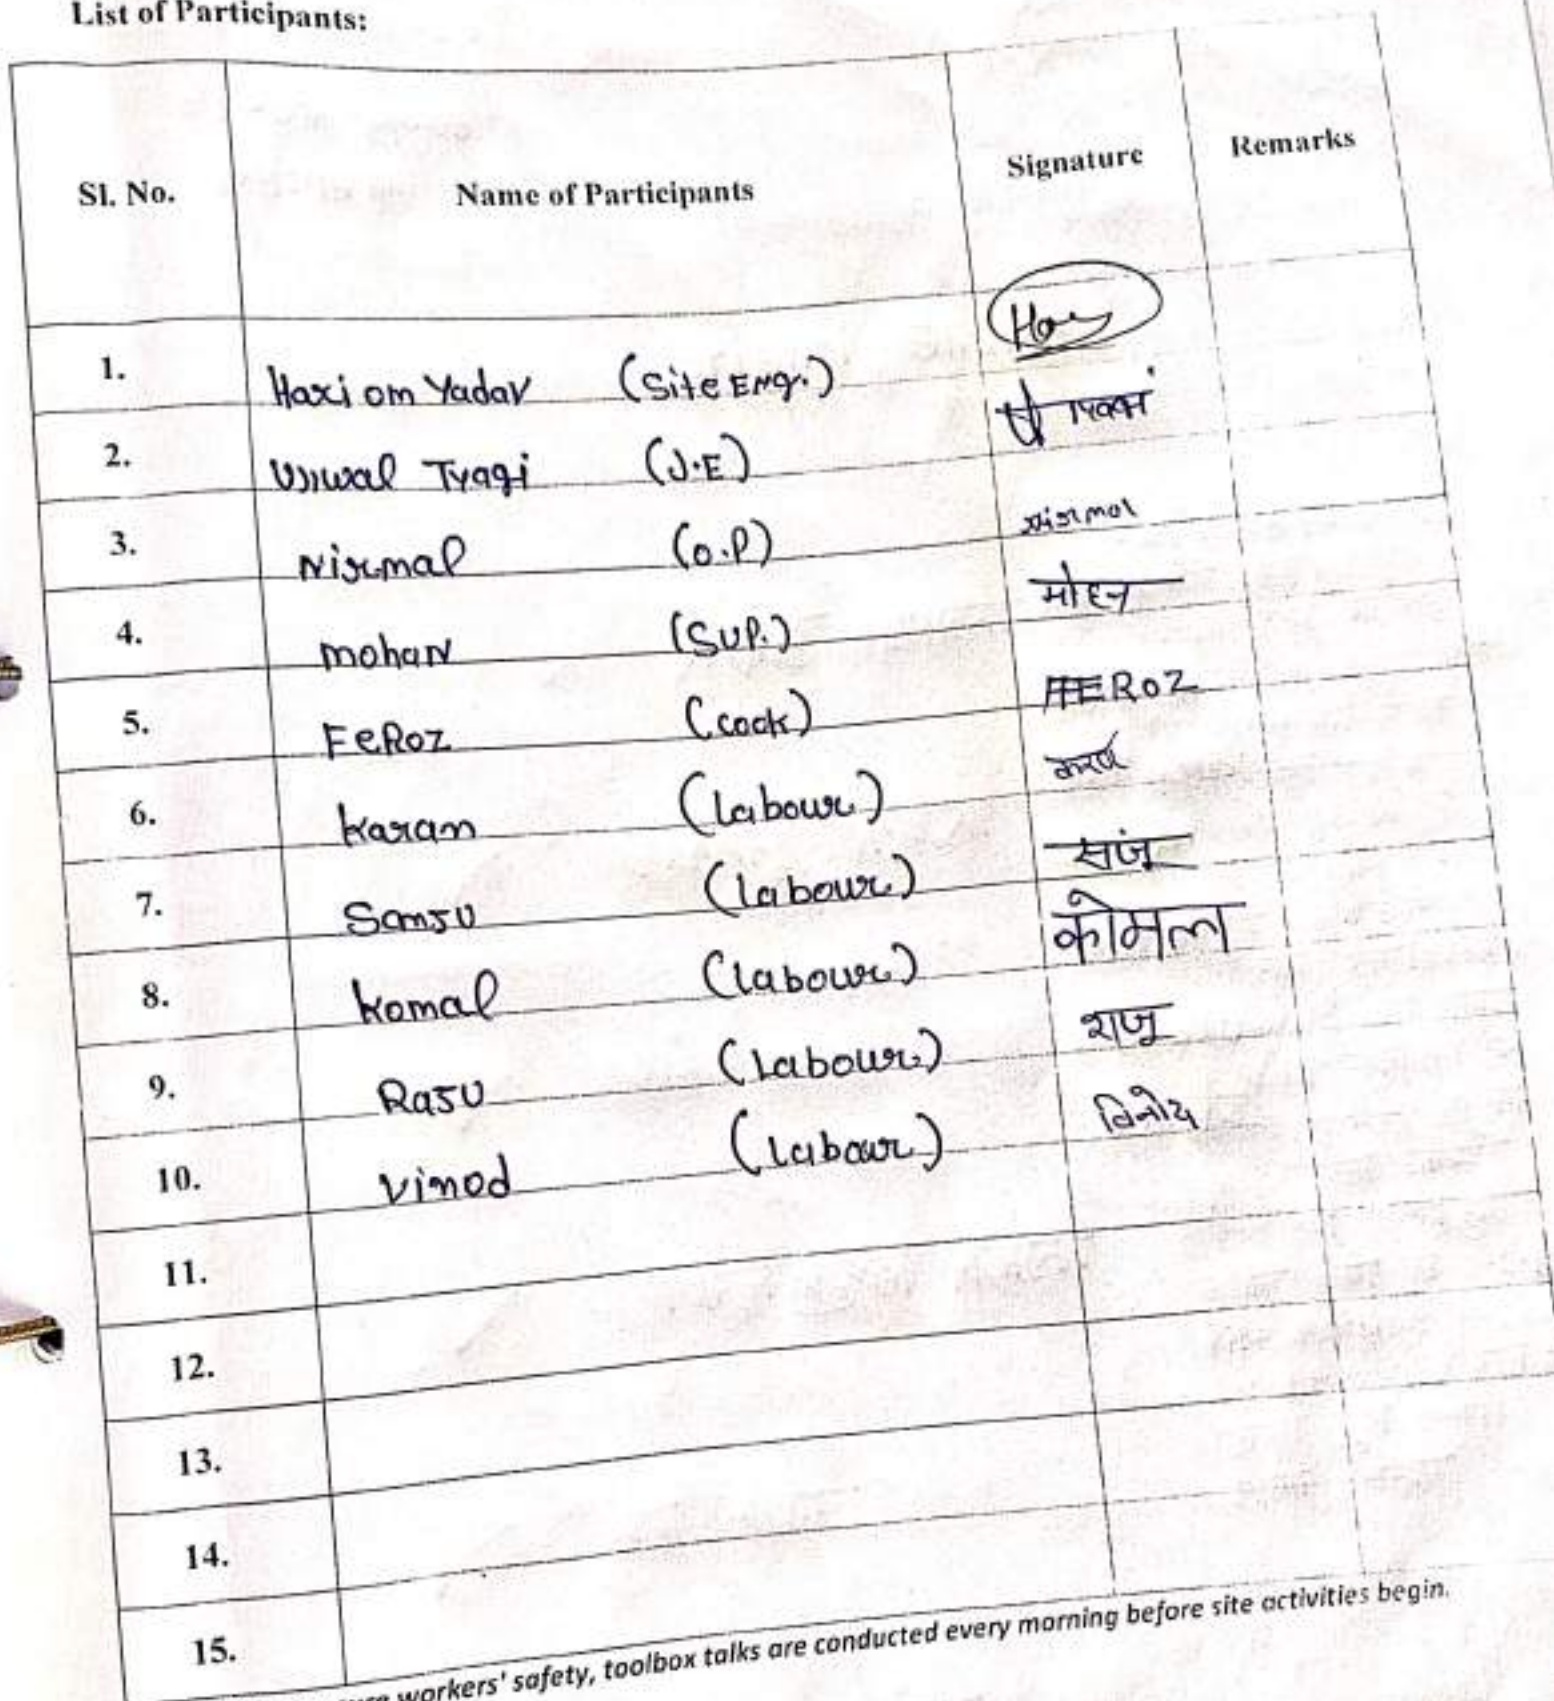 List of Participants:
Sl. No. Name of Participants Signature Remarks
1. Hari om Yadav (Site Eng.) Hari
2. Ujjwal Tyagi (J.E)
3. Nirmal (O.P)
4. mohan (SUP.) मोहन
5. FeRoz (cook) FEROZ
6. Karam (labour) करण
7. Sanju (labour) संजू
8. Komal (labour) कोमल
9. Raju (Labour) राजू
10. Vinod (Labour) विनोद
11.
12.
13.
14.
15.
workers' safety, toolbox talks are conducted every morning before site activities begin.